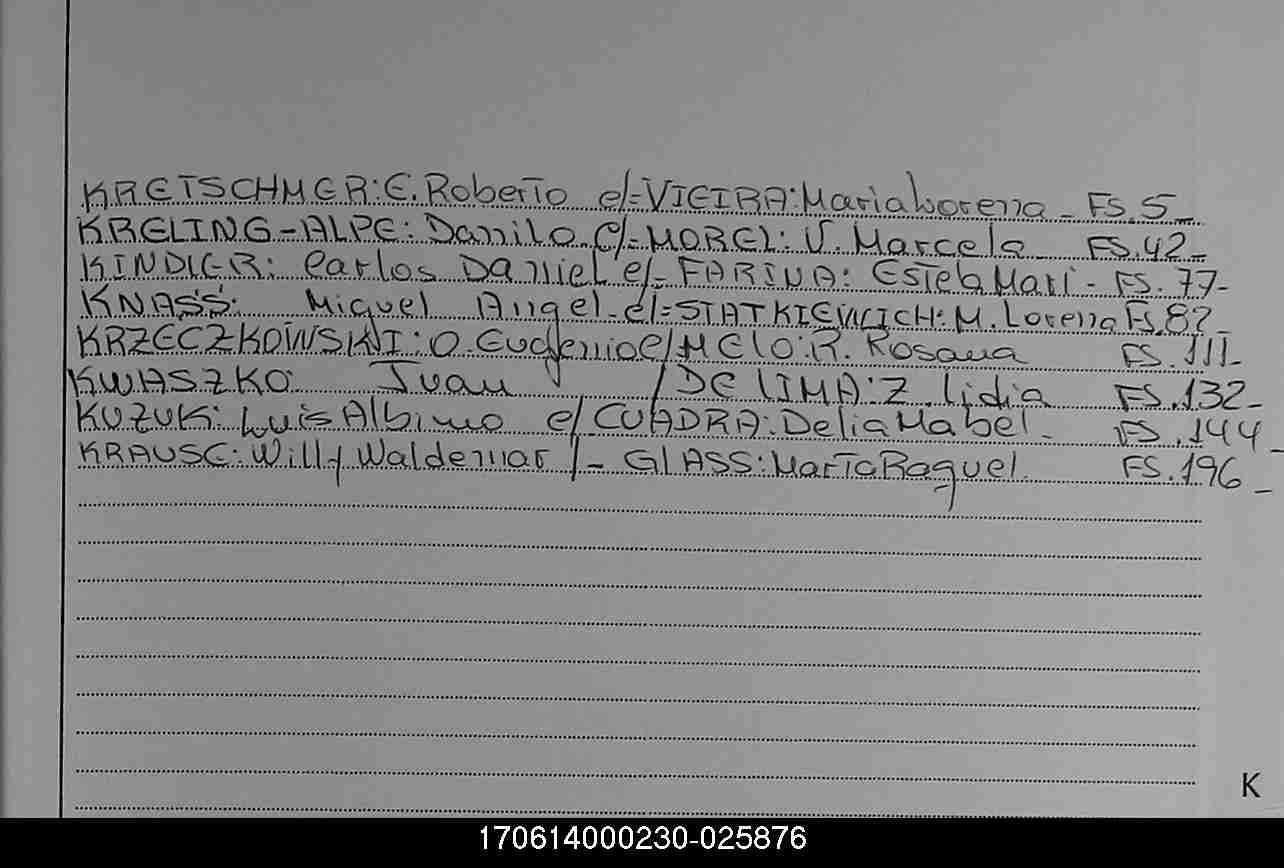 KRETSCHMER: E. Roberto c/= VIEIRA: Maria Lorena - FS. 5 -
KRELING-ALPE: Danilo c/= MOREL: V. Marcela FS. 42 -
KINDLER: Carlos Daniel c/- FARIÑA: Estela Mari - FS. 77-
KNASS: Miguel Angel - c/= STATKIEWICH: M. Lorena FS. 82 -
KRZECZKOWSKI: O. Eugenio c/ MELO: R. Rosana FS. 111-
KWASZKO: Juan / DE LIMA: Z. Lidia FS. 132-
KUZUK: Luis Albino c/ CUADRA: Delia Mabel - FS. 144 -
KRAUSE: Willy Waldemar / - GLASS: Marta Raquel FS. 196 -
K
170614000230-025876